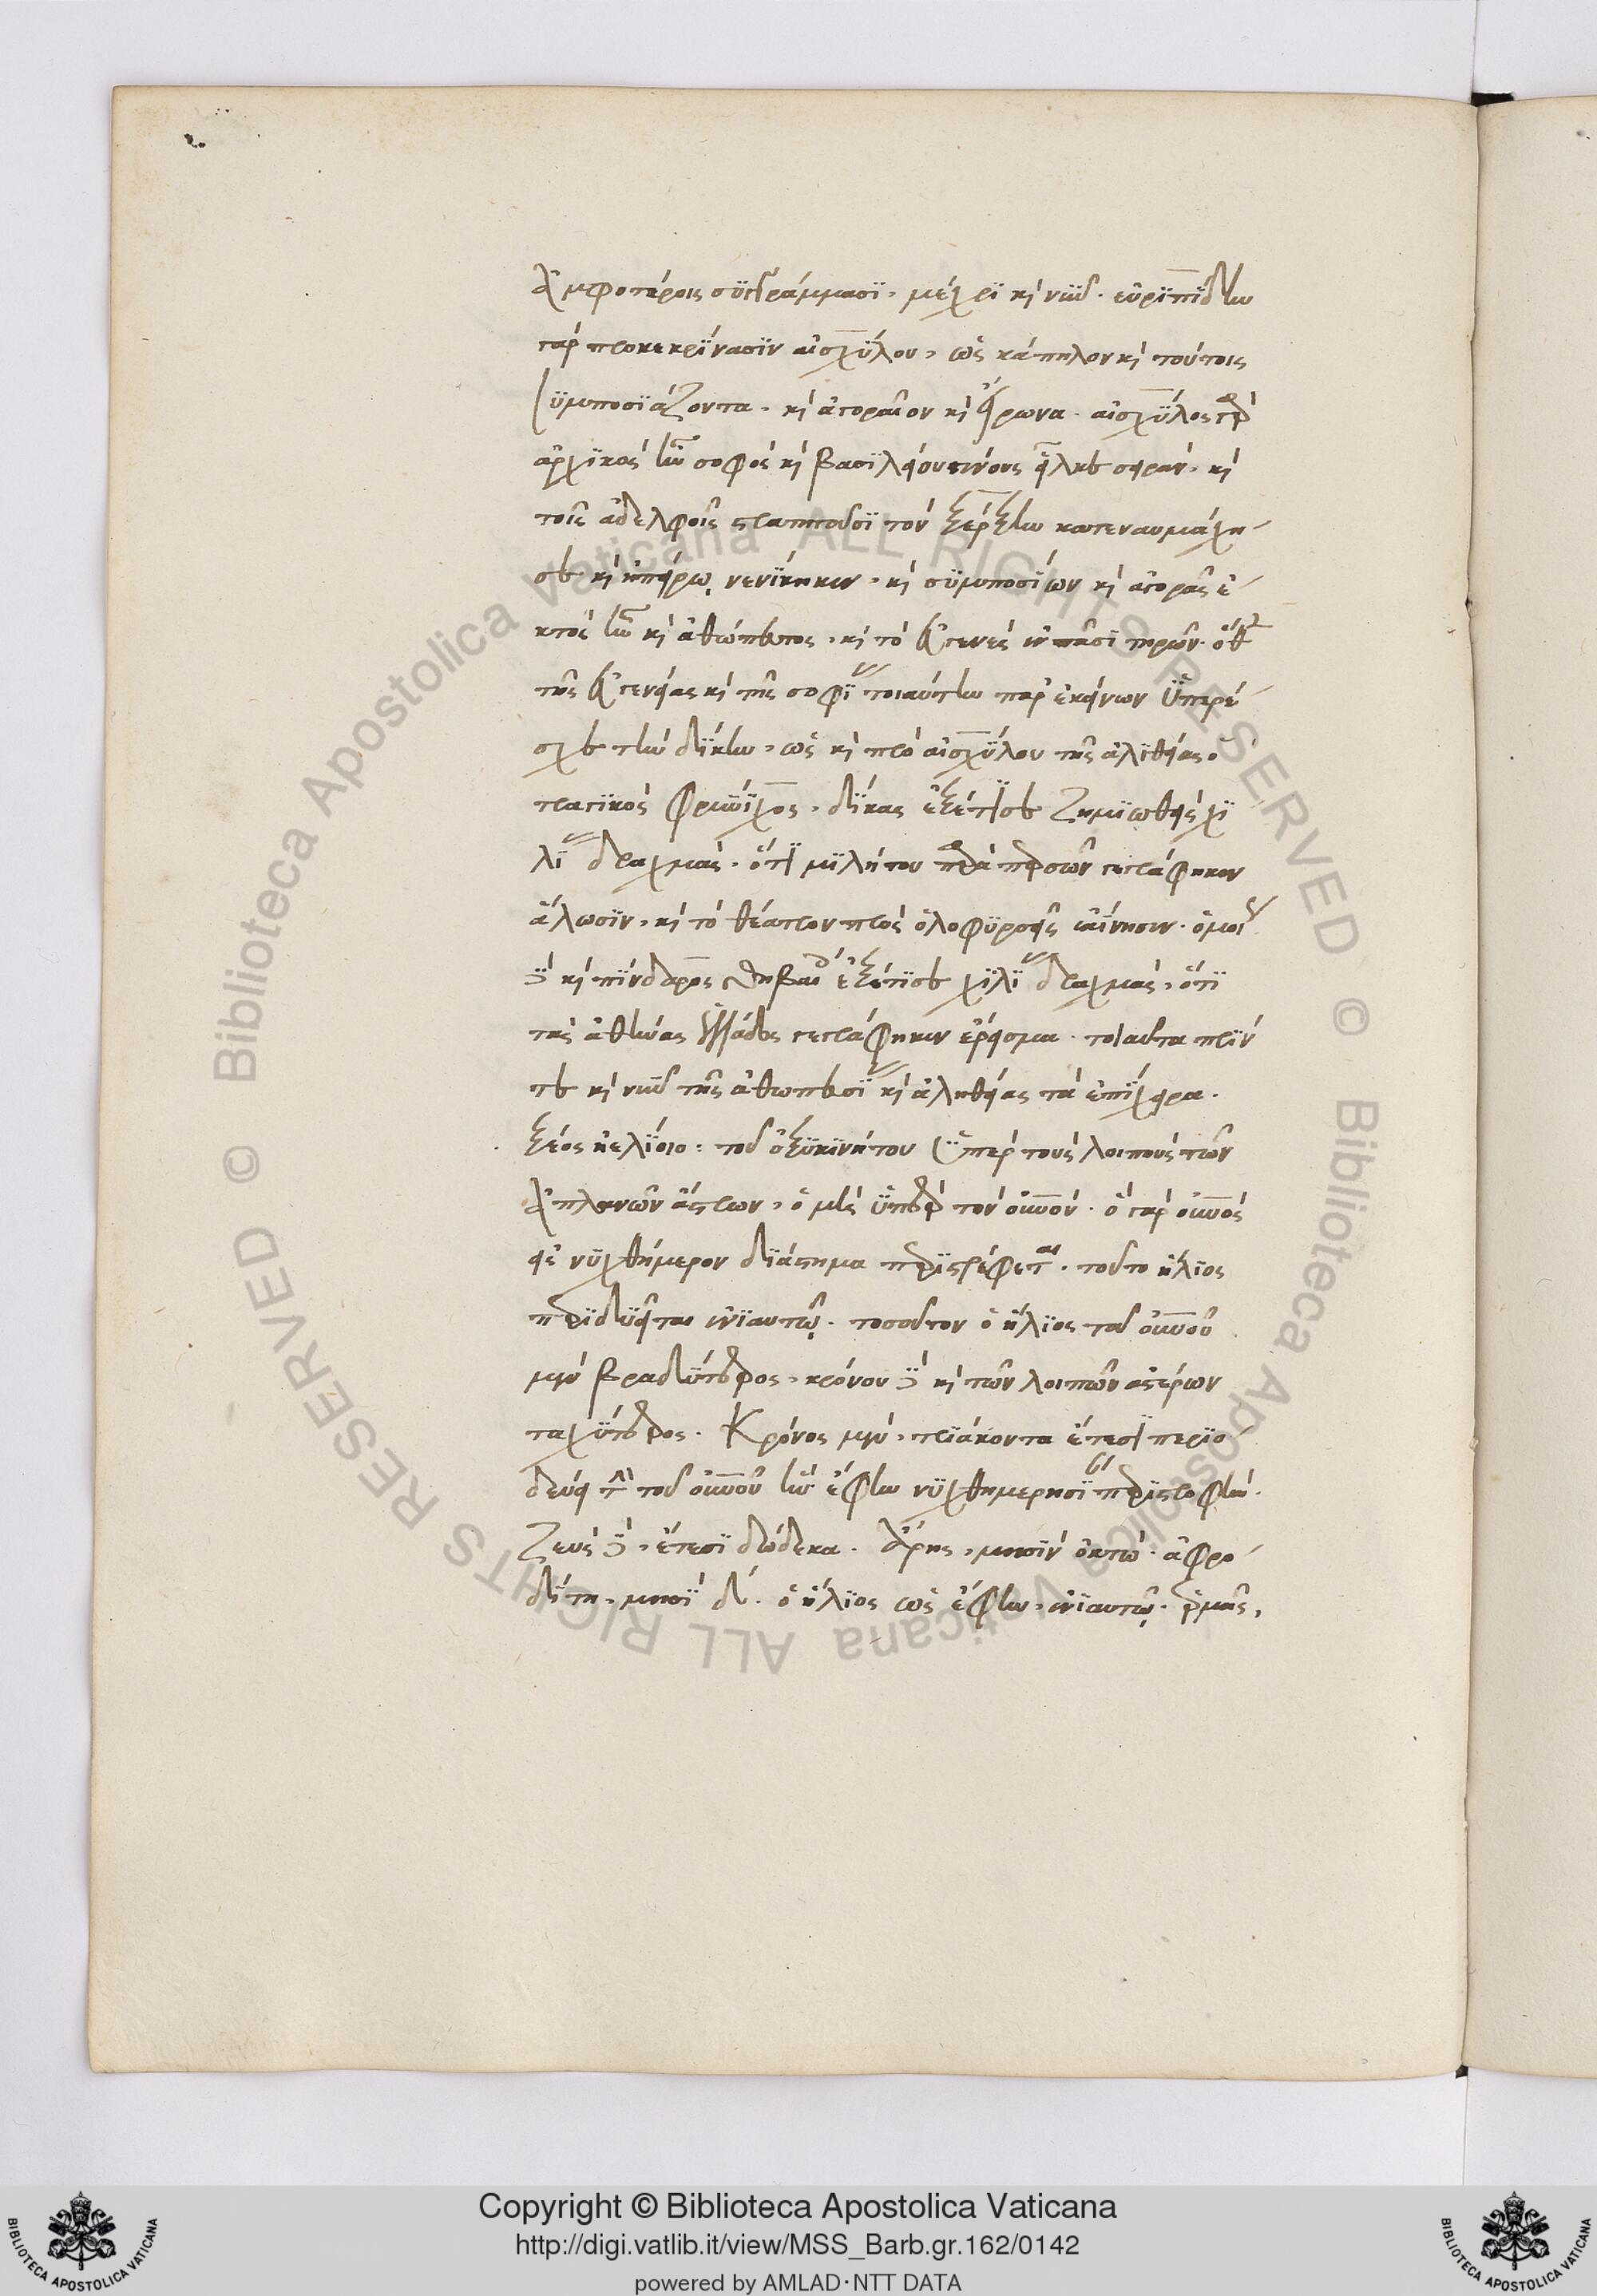 ἀμφοτέροις συγγράμμασι, μέχρι καὶ νῦν. εὐριπίδην
γὰρ προκεκρίνασιν αἰσχύλου, ὡς κάπηλον καὶ τούτοις
συμποσιάζοντα, καὶ ἀγοραῖον καὶ εἴρωνα. αἰσχύλος γὰρ
ἀρχικὸς ἦν σοφὸς καὶ βασιλείου γένους εἷλκε σειράν, καὶ
τοῖς ἀδελφοῖς στρατηγοῖς τὸν ξέρξην κατεναυμάχη-
σε καὶ ἠπείρῳ νενίκηκεν, καὶ συμποσίων καὶ ἀγορᾶς ἐ-
κτὸς ἦν καὶ ἀθώπευτος, καὶ τὸ εὐγενὲς ἐν πᾶσι τηρῶν. ὅθεν
τῆς εὐγενείας καὶ τῆς σοφίας τοιαύτην παρ' ἐκείνων ὑπέ-
σχε τὴν δίκην, ὡς καὶ πρὸ αἰσχύλου τῆς ἀληθείας ὁ
τραγικὸς φρύνιχος, δίκας ἐξέτισε ζημιωθεὶς χι
λίας δραχμάς, ὅτι μιλήτου παρὰ περσῶν γεγράφηκεν
ἅλωσιν, καὶ τὸ θέατρον πρὸς ὀλοφύρσεις ἐκίνησεν. ὁμοίως
δὲ καὶ πίνδαρος θηβαίοις ἐξέτισε χιλίας δραχμάς, ὅτι
τὰς ἀθήνας ἑλλάδος γεγράφηκεν ἔρεισμα. τοιαῦτα πρίν
τε καὶ νῦν τῆς ἀθωπευσίας καὶ ἀληθείας τὰ ἐπίχειρα.
ξέος ἠελίοιο: τοῦ ὀξυκινήτου ὑπὲρ τοὺς λοιποὺς τῶν
ἀπλανῶν ἄστρων, ὁ μεὶς ὑπὲρ τὸν οὐρανόν. ὁ γὰρ οὐρανὸς
εἰς νυχθήμερον διάστημα περιστρέφεται. τοῦτο ἥλιος
περιδινεῖται ἐνιαυτῷ. τοσοῦτον ὁ ἥλιος τοῦ οὐρανοῦ
μὲν βραδύτερος, κρόνου δὲ καὶ τῶν λοιπῶν ἀστέρων
ταχύτερος. Κρόνος μὲν, τριάκοντα ἔτεσι περιο-
δεύει τὴν τοῦ οὐρανοῦ ἣν ἔφην νυχθημερησίαν περιστροφήν.
Ζεὺς δὲ, ἔτεσι δώδεκα. Ἄρης, μησὶν ὀκτώ. ἀφρο-
δίτη, μησὶ δέ. ὁ ἥλιος ὡς ἔφην, ἐνιαυτῷ. ἑρμῆς,
Copyright © Biblioteca Apostolica Vaticana
http://digi.vatlib.it/view/MSS_Barb.gr.162/0142
powered by AMLAD·NTT DATA